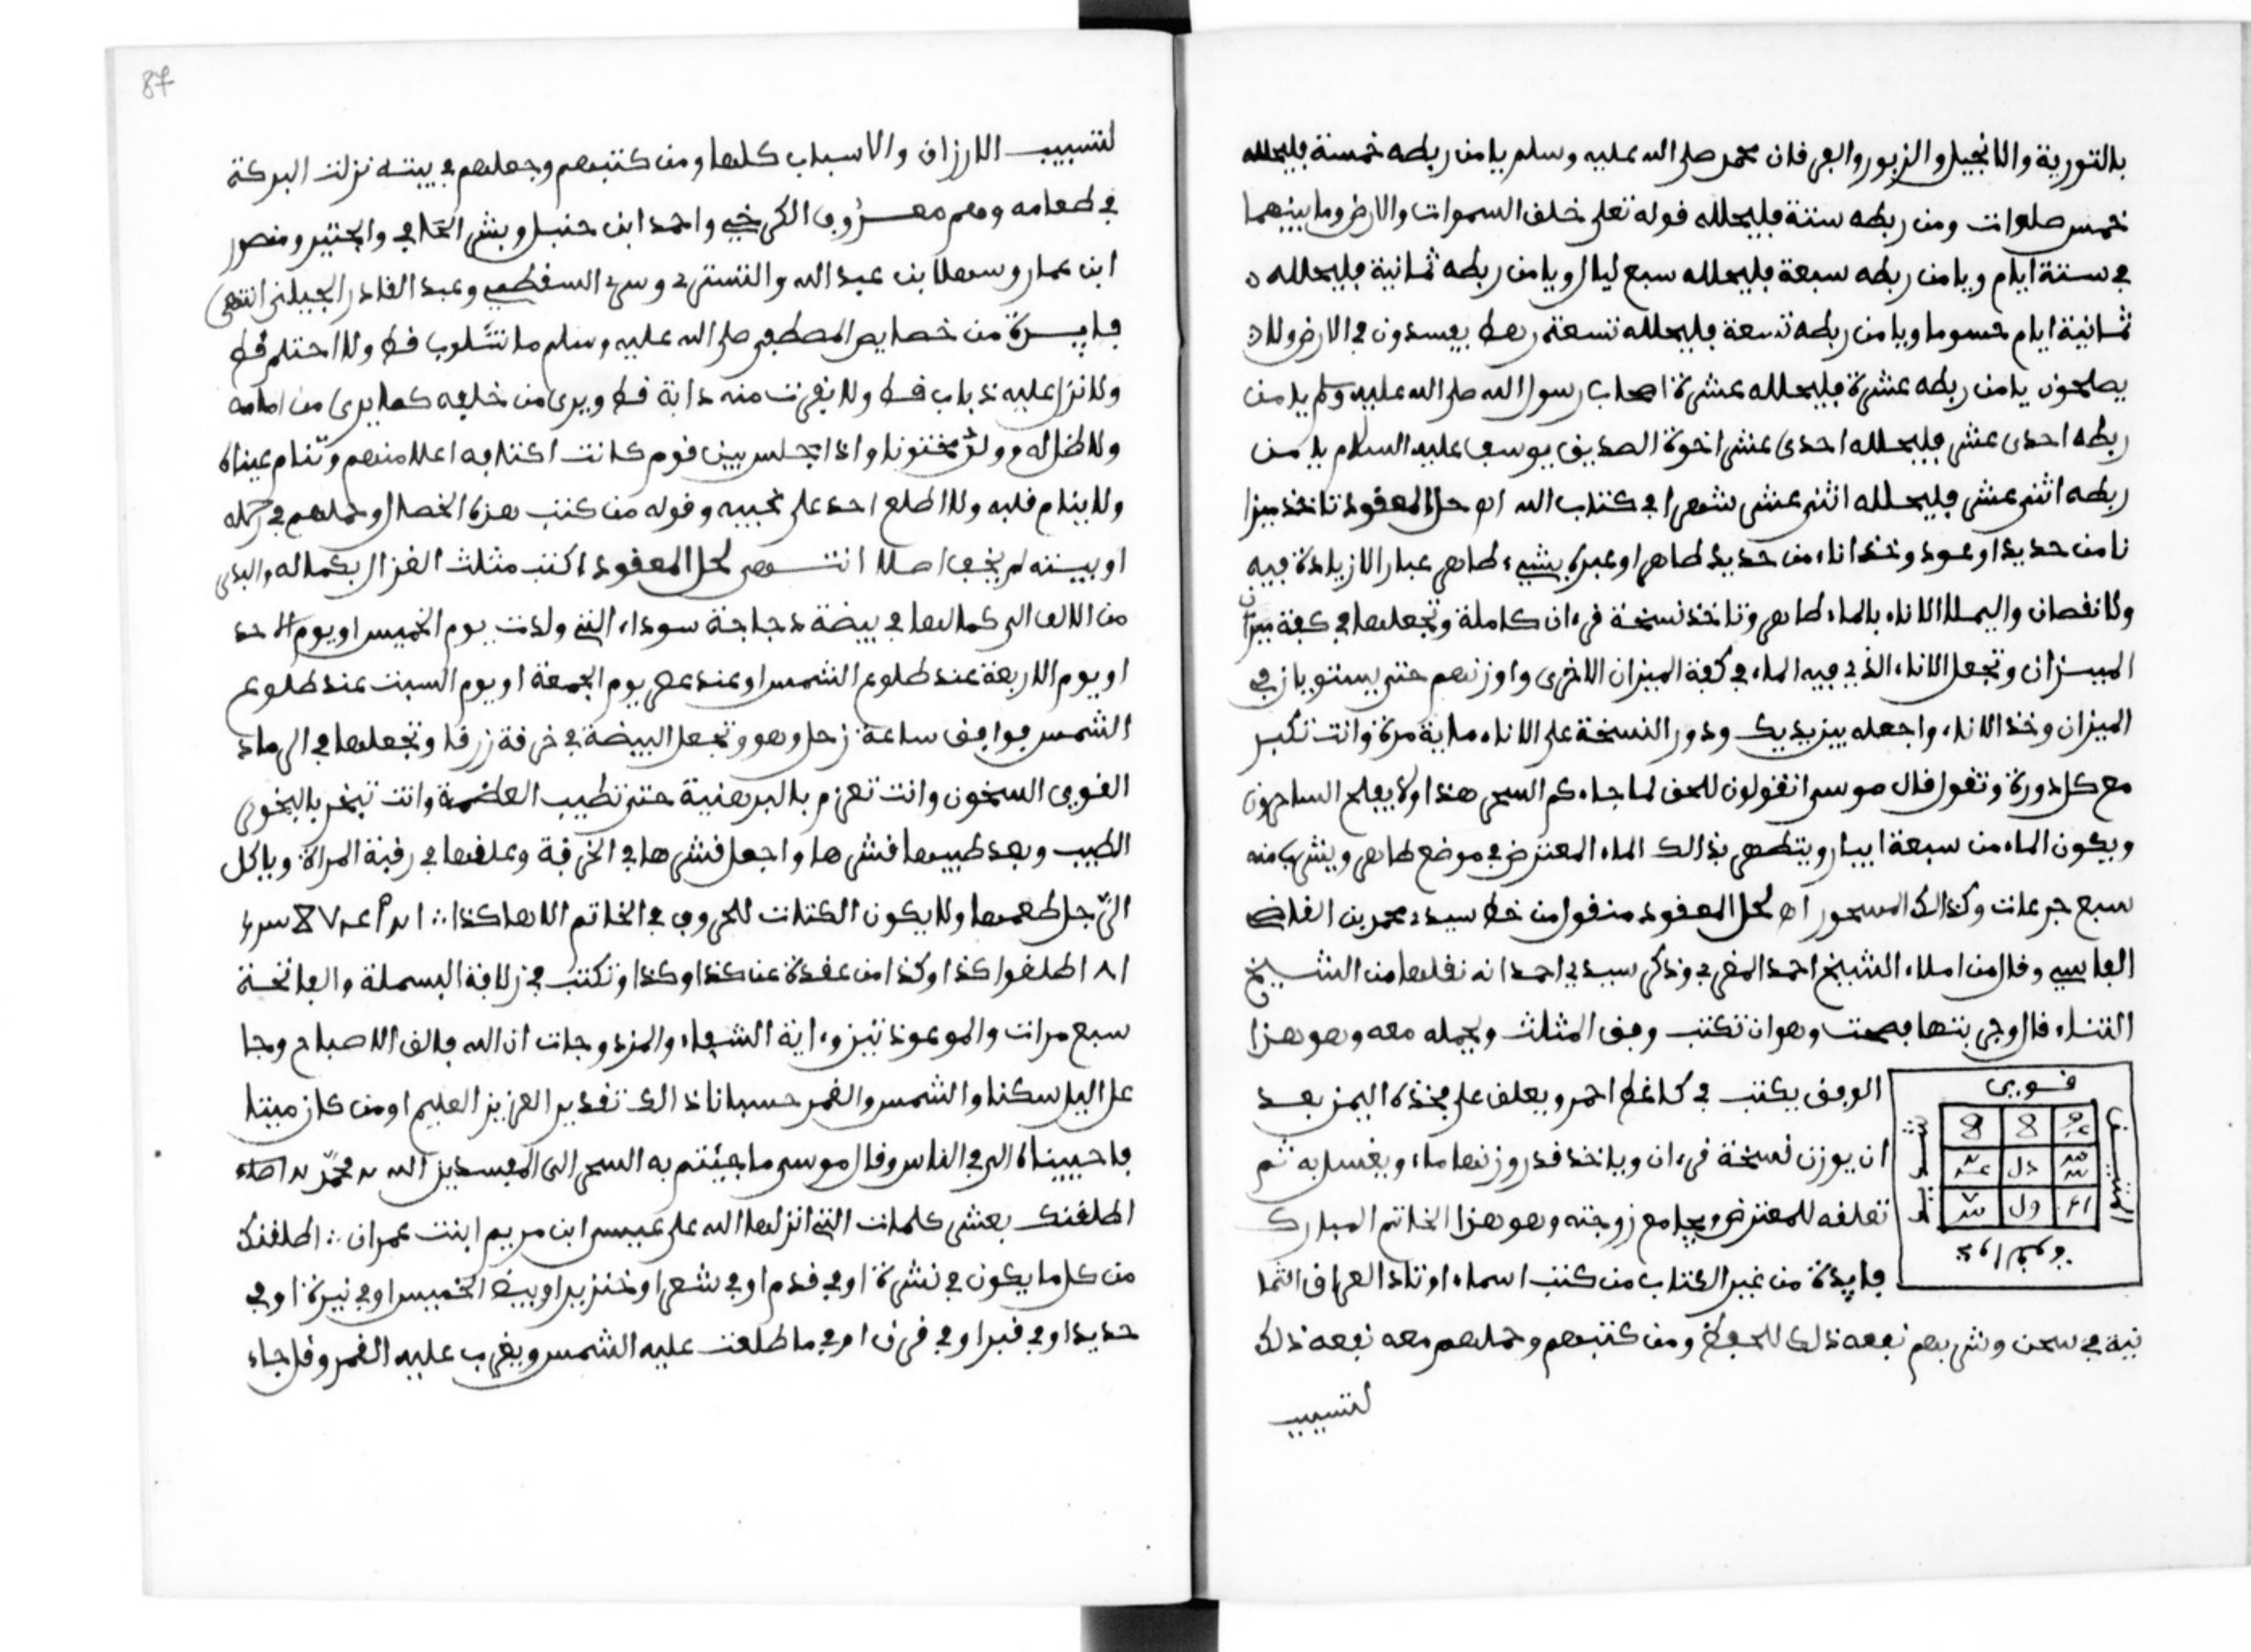 بالتورية والانجيل والزبور والفرقان محمد صلى الله عليه وسلم يا من ربطه خمسة فليحلله
خمس صلوات ومن ربطه ستة فليحلله قوله تعلى خلق السموات والارض وما بينهما
في ستة ايام ويا من ربطه سبعة فليحلله سبع ليال ويا من ربطه ثمانية فليحلله
ثمانية ايام حسوما ويا من ربطه تسعة فليحلله تسعة رهط يفسدون في الارض ولا
يصلحون يا من ربطه عشرة فليحلله عشرة اصحاب رسول الله صلى الله عليه وسلم يا من
ربطه احدى عشر فليحلله احدى عشر اخوة الصديق يوسف عليه السلام يا من
ربطه اثنى عشر فليحلله اثنى عشر شهرا في كتاب الله اه حل المعقود تاخذ ميزا
نا من حديد او عود وخذ اناء من حديد طاهر او غيره بشيء طاهر عبار لا زيادة فيه
ولا نقصان واليملا الاناء بالماء طاهر وتاخذ نسخة قرءان كاملة وتجعلها في كفة ميزان
الميزان وتجعل الاناء الذي فيه الماء في كفة الميزان الاخرى واوزنهم حتى يستويا في
الميزان وخذ الاناء واجعله بين يديك ودور النسخة على الاناء ماية مرة وانت تكبر
مع كل دورة وتقول قال موسى اتقولون للحق لما جاءكم السحر هذا ولا يفلح الساحرون
ويكون الماء من سبعة ابيار ويتطهر بذالك الماء المعترض في موضع طاهر ويشرب منه
سبع جرعات وكذالك المسحور اه لحل المعقود منقول من خط سيدي محمد بن القاضي
الفاسي وقال من املاء الشيخ احمد المغربي وذكر سيدي احمد انه نقلها من الشيخ
التناء قال وجربتها فصحت وهو ان تكتب وفق المثلث ويحمله معه وهو هذا
الوفق يكتب في كاغط احمر ويعلق على فخذه اليمن بعد
ان يوزن نسخة قرءان وياخذ قدر وزنها ماء ويغسل به ثم
تعلقه للمعترض ويجامع زوجته وهو هذا الخاتم المبارك
فايدة من غير الكتاب من كتب اسماء اوتاد العراق الثما
نية في سحن وشربهم نفعه ذلك للحفظ ومن كتبهم وحملهم معه نفعه ذلك
لتسبيب
87
لتسبيب الارزاق والاسباب كلها ومن كتبهم وجعلهم في بيته نزلت البركة
في طعامه وهم معروف الكرخي واحمد ابن حنبل وبشر الحافي والجنيد ومنصور
ابن عمار وسهل ابن عبد الله والتستري وسري السقطي وعبد القادر الجيلني انتهى
فايدة من خصايص المصطفى صلى الله عليه وسلم ما تثاوب قط ولا احتلم قط
ولا نزل عليه ذباب قط ولا نفرت منه دابة قط ويرى من خلفه كما يرى من امامه
ولا ظل له وولد مختونا واذا جلس بين قوم كانت اكتافه اعلا منهم وتنام عيناه
ولا ينام قلبه ولا اطلع احد على نحبيه وقوله من كتب هذه الخصال وحملهم في رحله
او بيته لم يخف اصلا انتهى لحل المعقود اكتب مثلث الغزال بكماله والبدى
من الالف الى كمالها في بيضة دجاجة سوداء التي ولدت يوم الخميس او يوم الاحد
او يوم الاربعة عند طلوع الشمس او عند عصر يوم الجمعة او يوم السبت عند طلوع
الشمس فوافق ساعة زحل وهو وتجعل البيضة في خرقة زرقا وتجعلها في الرماد
القوى السخون وانت تعزم بالبرهتية حتى تطيب العضمة وانت تبخر بالبخور
الطيب وبعد طيبها قشرها واجعل قشرها في الخرقة وعلقها في رقبة المراة وياكل
الرجل طعمها ولا يكون الكتات للحروف في الخاتم الا هاكذا
اطلقوا كذا وكذا من عقدة عن كذا وكذا وتكتب في زلافة البسملة والفاتحة
سبع مرات والموعوذتين وءاية الشفاء والمزدوجات ان الله فالق الاصباح وجا
عل اليل سكنا والشمس والقمر حسبانا ذالك تقدير العزيز العليم اومن كان ميتا
فاحييناه الى في الناس وقال موسى ما جئتم به السحر الى المفسدين الله محمد
اطلقتك بعشر كلمات التي انزلها الله على عيسى ابن مريم ابنت عمران اطلقتك
من كل ما يكون في نشرة او في قدم او في شعر او خنزير او بيض الخميس او في نيرة او في
حديد او في قبر او في قرن او في ما طلعت عليه الشمس ويغرب عليه القمر وقل جاء